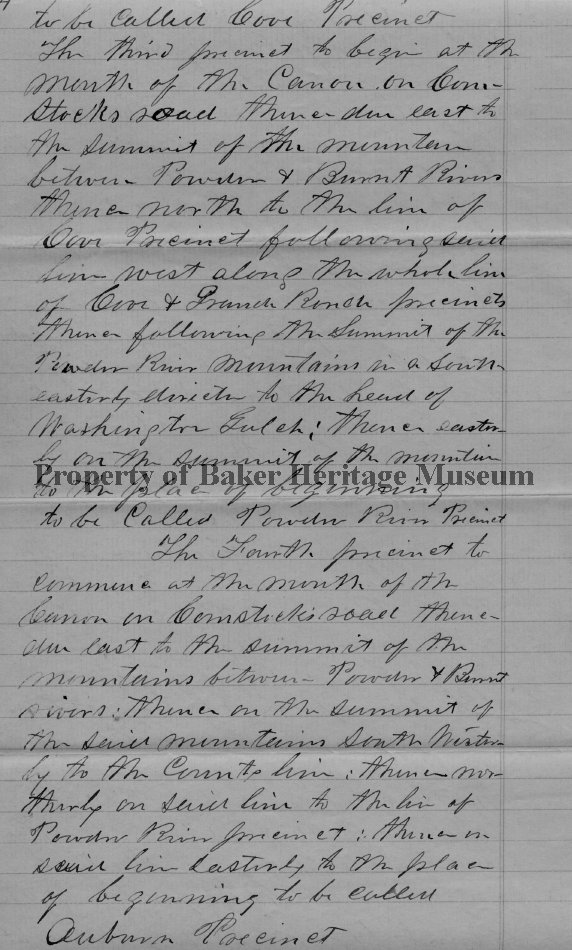 to be called Cove Precinct
The third precinct to begin at the
mouth of the Canon on Com-
stocks road thence due east to
the summit of the mountain
between Powder & Burnt Rivers
thence north to the line of
Cove Precinct following said
line west along the whole line
of Cove & Grande Ronde precincts
thence following the Summit of the
Powder River Mountains in a south
easterly directn to the head of
Washington Gulch; thence easter-
ly on the summit of the mountain
Property of Baker Heritage Museum
to the place of beginning
to be Called Powder River Precinct
The Fourth precinct to
commence at the mouth of the
Canon on Comstocks road thence
due east to the summit of the
mountains between Powder & Burnt
rivers: thence on the summit of
the said mountains South Wester-
ly to the County line: thence nor-
therly on said line to the line of
Powder River precinct: thence on
said line Easterly to the place
of beginning to be called
Auburn Precinct